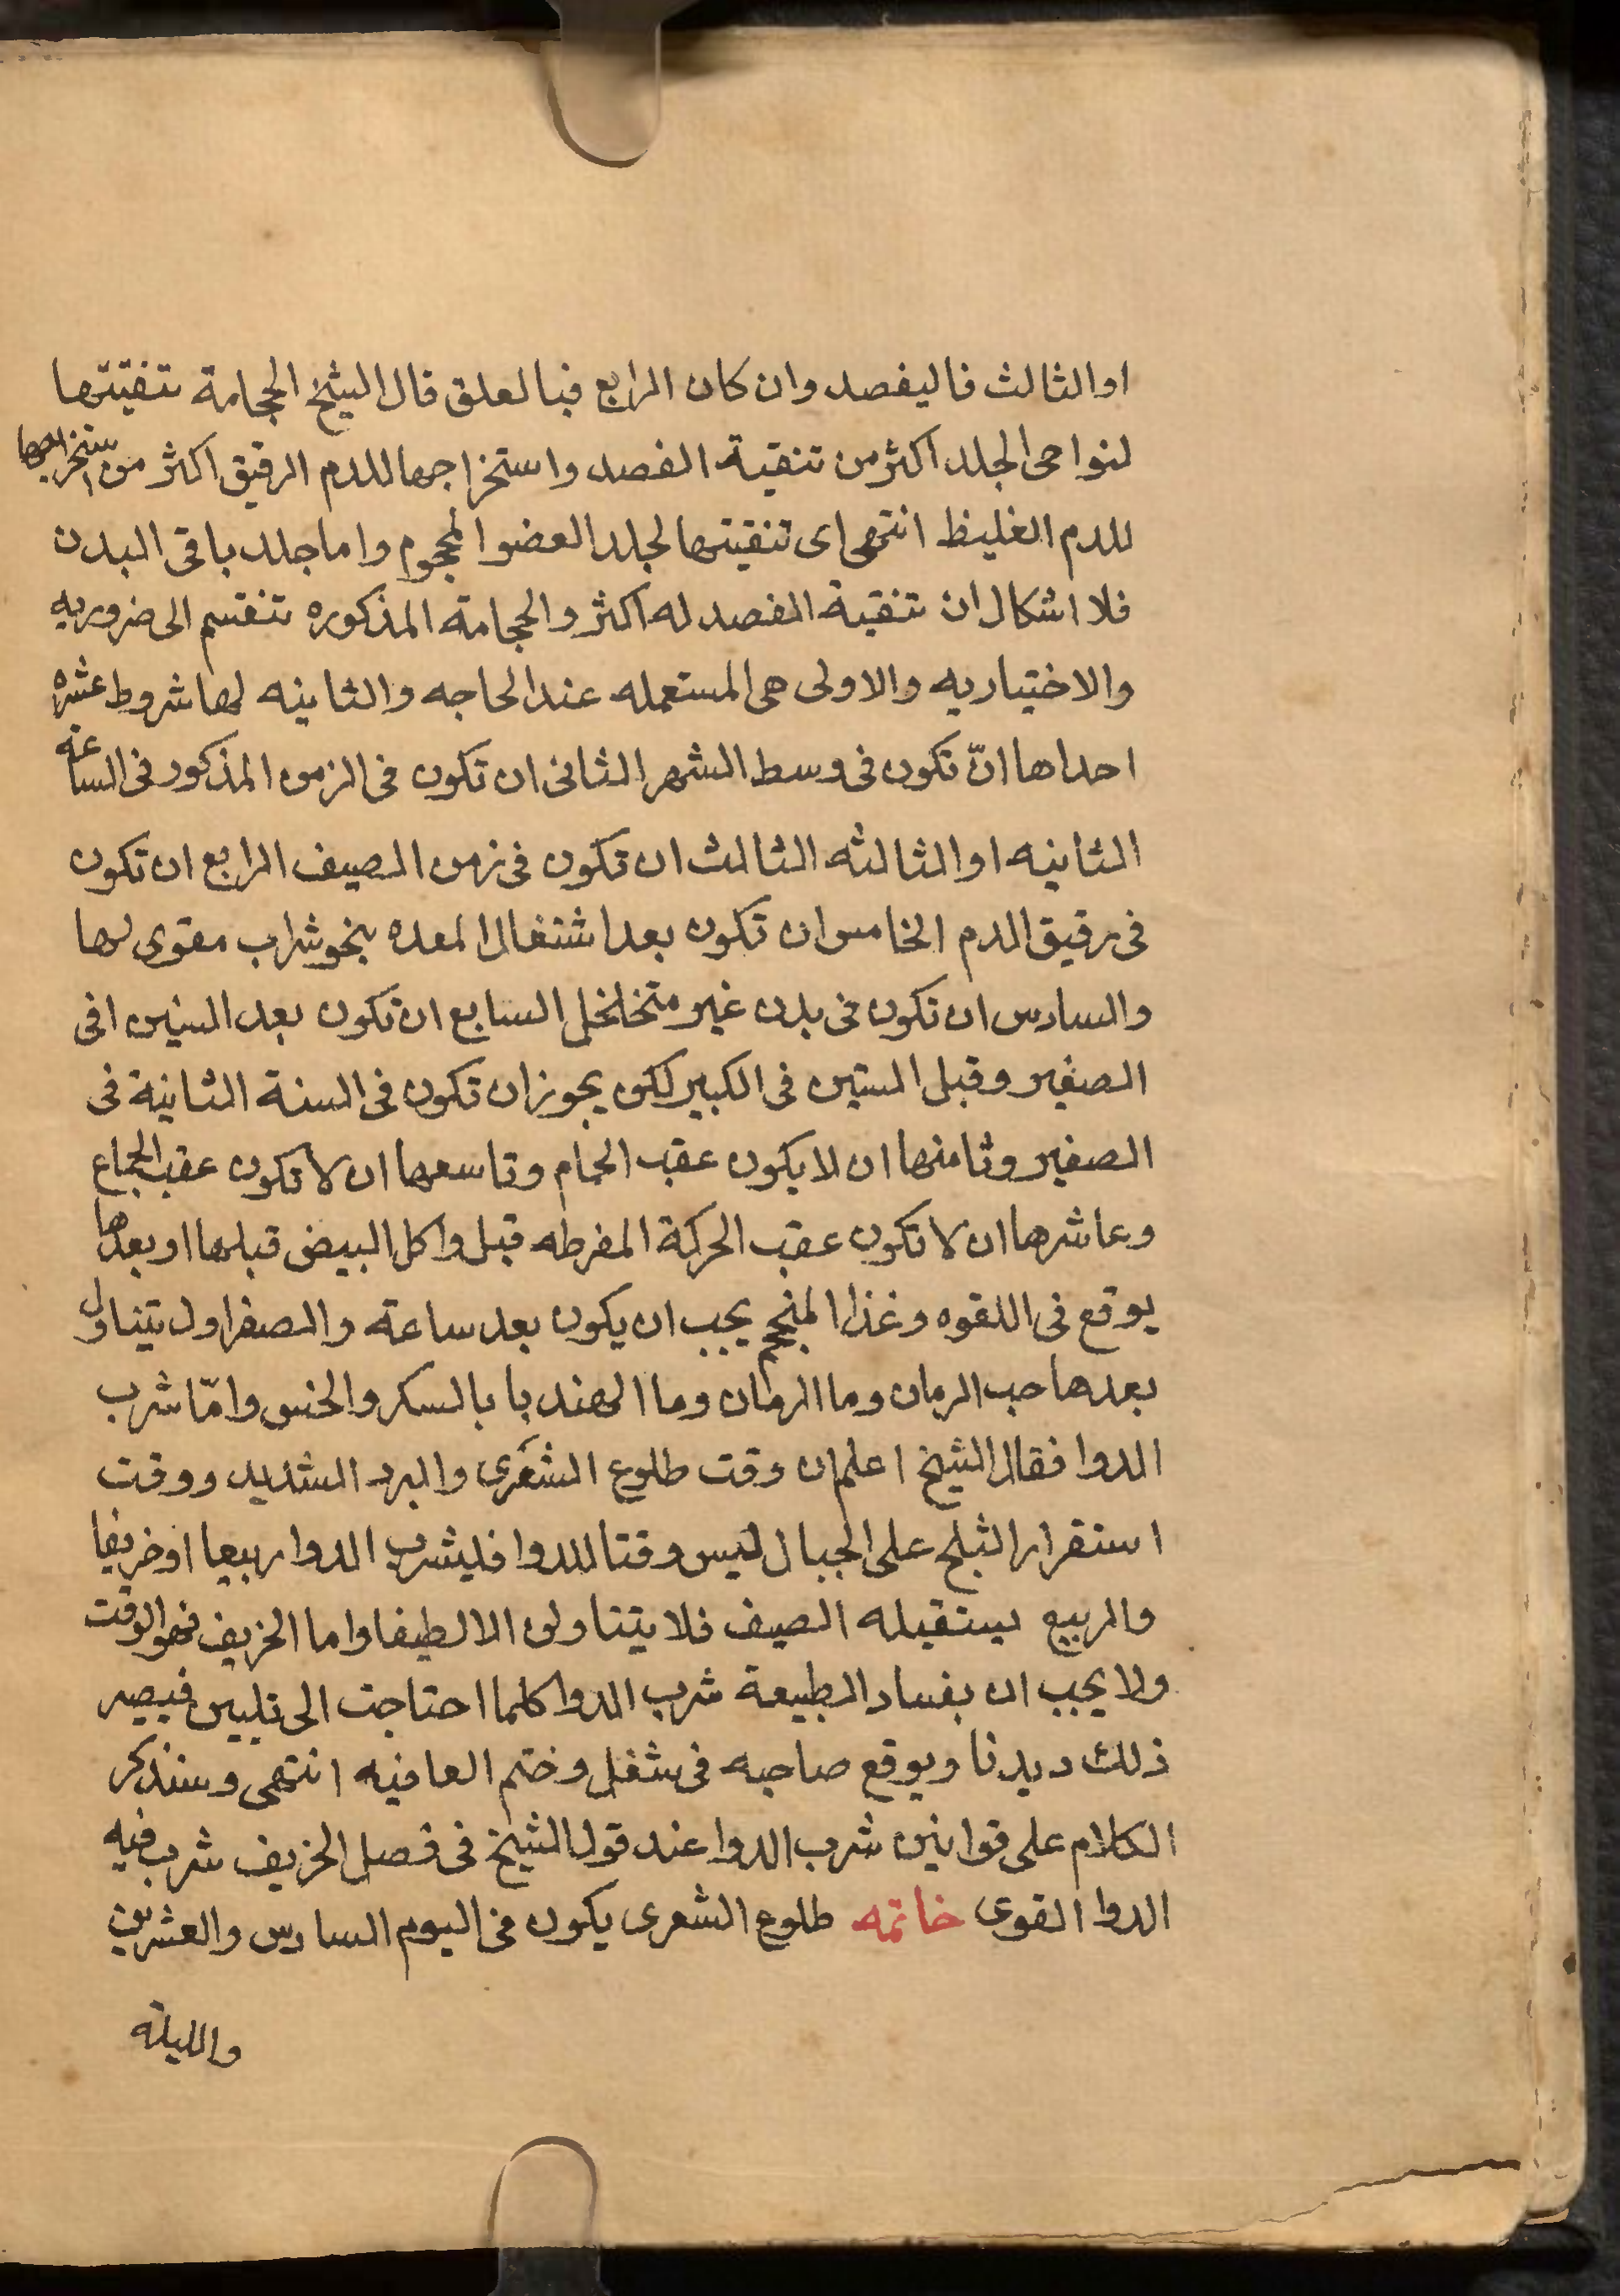 او الثالث فاليفصد وان كان الرابع فبالعلق قال الشيخ الحجامة تنقيتها
لنواحى الجلد اكثر من تنقية الفصد واستخراجها للدم الرقيق اكثر من استخراجها
للدم الغليظ انتهى اى تنقيتها لجلد العضو المحجوم واما جلد باقى البدن
فلا اشكال ان تنقية الفصد له اكثر والحجامة المذكوره تنقسم الى ضروريه
والاختياريه والاولى هى المستعمله عند الحاجه والثانيه لها شروط عشره
احداها انّ تكون فى وسط الشهر الثانى ان تكون فى الزمن المذكور فى الساعة
الثانيه او الثالثه الثالث ان تكون فى زمن الصيف الرابع ان تكون
فى رقيق الدم الخامس ان تكون بعد اشتغال المعده بنحو شراب مقوى لها
والسادس ان تكون فى بدن غير متخلخل السابع ان تكون بعد السنين افى
الصغير وقبل الستين فى الكبير لكن يجوز ان تكون فى السنة الثانية فى
الصغير وثامنها ان لا يكون عقب الحمام وتاسعها ان لا تكون عقب الجماع
وعاشرها ان لا تكون عقب الحركة المفرطه قيل واكل البيض قبلها او بعدها
يوقع فى اللقوه وغذا المنحجم يجب ان يكون بعد ساعة والصفراول يتناول
بعدها حب الرمان وما الرمان وما الهندبا بالسكر والخس وامّا شرب
الدوا فقال الشيخ اعلم ان وقت طلوع الشعرى والبرد الشديد ووقت
استقرار الثلج على الجبال ليس وقتا للدوا فليشرب الدوا ربيعا او خريفا
والربيع يستقبله الصيف فلا يتناولن الا لطيفا واما الخريف فهو الوقت
ولا يجب ان بفساد الطبيعة شرب الدوا كلما احتاجت الى تليين فيصير
ذلك ديدنا ويوقع صاحبه فى شغل وختم العافيه انتهى وسنذكر
الكلام على قوانين شرب الدوا عند قول الشيخ فى فصل الخريف شرب فيه
الدوا القوى خاتمه طلوع الشعرى يكون فى اليوم السادس والعشرين
والليلة